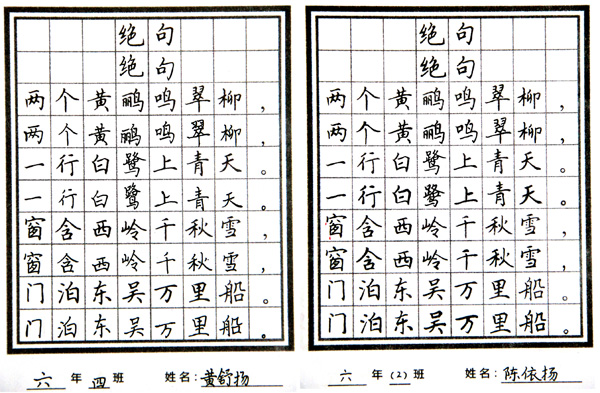 绝句
绝句
两个黄鹂鸣翠柳，
两个黄鹂鸣翠柳，
一行白鹭上青天。
一行白鹭上青天。
窗含西岭千秋雪，
窗含西岭千秋雪，
门泊东吴万里船。
门泊东吴万里船。
六年四班 姓名：黄舒扬
绝句
绝句
两个黄鹂鸣翠柳，
两个黄鹂鸣翠柳，
一行白鹭上青天。
一行白鹭上青天。
窗含西岭千秋雪，
窗含西岭千秋雪，
门泊东吴万里船。
门泊东吴万里船。
六年(2)班 姓名：陈依扬